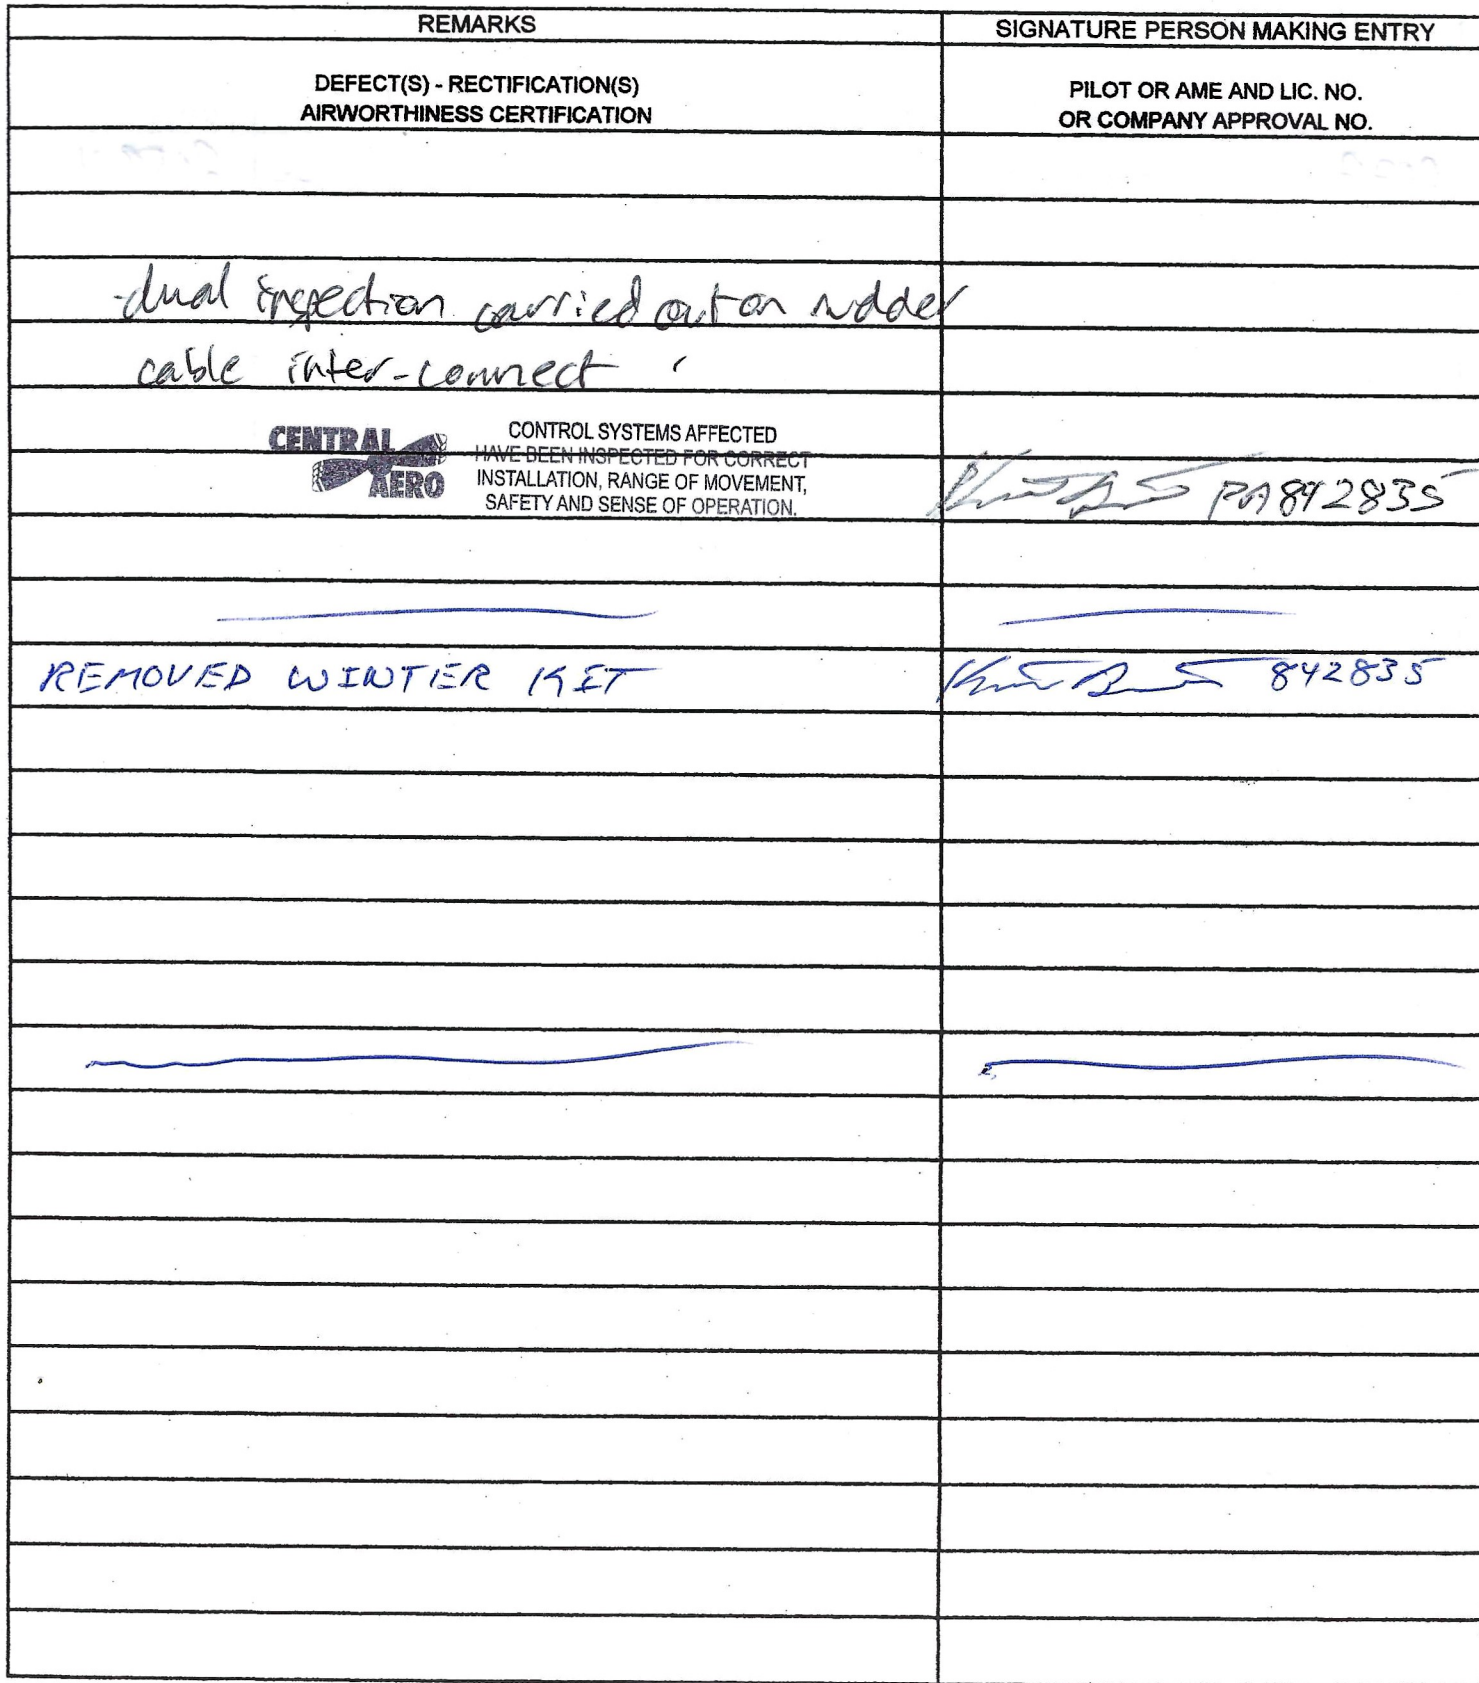 REMARKS
SIGNATURE PERSON MAKING ENTRY
DEFECT(S) - RECTIFICATION(S)
AIRWORTHINESS CERTIFICATION
PILOT OR AME AND LIC. NO.
OR COMPANY APPROVAL NO.
-dual inspection carried out on rudder
cable inter-connect
CENTRAL
AERO
CONTROL SYSTEMS AFFECTED
HAVE BEEN INSPECTED FOR CORRECT
INSTALLATION, RANGE OF MOVEMENT,
SAFETY AND SENSE OF OPERATION.
842835
REMOVED WINTER KIT
842835